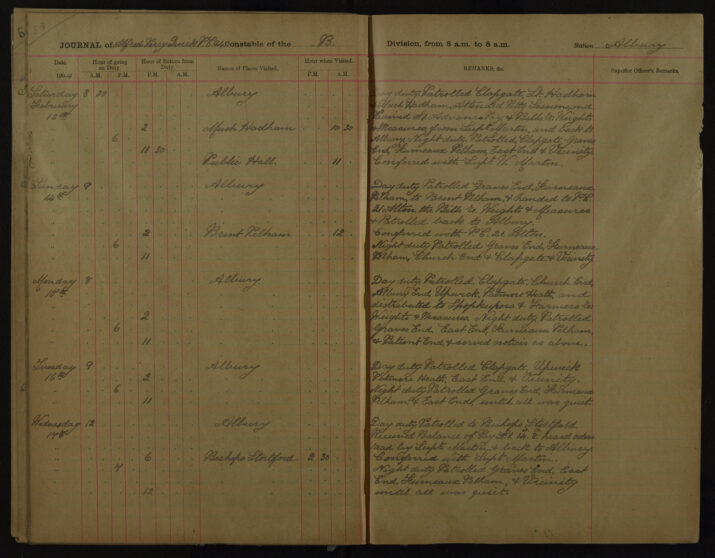 JOURNAL of Alfred Percy Quick P.C. 24 Constable of the B. Division, from 8 a.m. to 8 a.m. Station Albury
Date. Hour of going on Duty. Hour of Return from Duty. Names of Places Visited. Hour when Visited. REMARKS, &c. Superior Officer's Remarks.
A.M. P.M. A.M. P.M. P.M. A.M.
Saturday 8 30 Albury Day duty Patrolled Clapgate, Lt. Hadham
February & Much Hadham, Attended Petty Sessions and
13th Received Advance Pay & Bills to Weights
2 Much Hadham 10 30 & Measures from Supt. Martin, and back to
6 Albury. Night duty Patrolled, Clapgate, Graves
11 30 End, Furneaux Pelham, East End & Vicinity
Public Hall. 11 Conferred with Supt. W. Martin.
Sunday 9 Albury Day duty Patrolled Graves End, Furneaux
14th Pelham, to Brent Pelham, & handed to P.C.
21 the Bills to Weights & Measures
& Patrolled back to Albury.
2 Brent Pelham 12 Conferred with P.C. 21
6 Night duty Patrolled Graves End, Furneaux
11 Pelham, Church End & Clapgate & Vicinity
Monday 8 Albury Day duty Patrolled, Clapgate, Church End,
15th Albury End, Upwick, Patmore Heath, and
distributed to Shopkeepers & Farmers to
2 Weights & Measures. Night duty Patrolled
6 Graves End, East End, Furneaux Pelham,
11 & Patient End & served notices as above.
Tuesday 9 Albury Day duty Patrolled Clapgate, Upwick
16th 2 Patmore Heath, East End, & Vicinity.
6 Night duty Patrolled Graves End, Furneaux
11 Pelham, & East End, until all was quiet.
Wednesday 12 Albury Day duty Patrolled to Bishops Stortford
17th Received Balance of Pay & heard
read by Supt. Martin & back to Albury
6 Bishops Stortford 2 30 Conferred with Supt. Martin.
7 Night duty Patrolled Graves End, East
End, Furneaux Pelham, & Vicinity
12 until all was quiet.